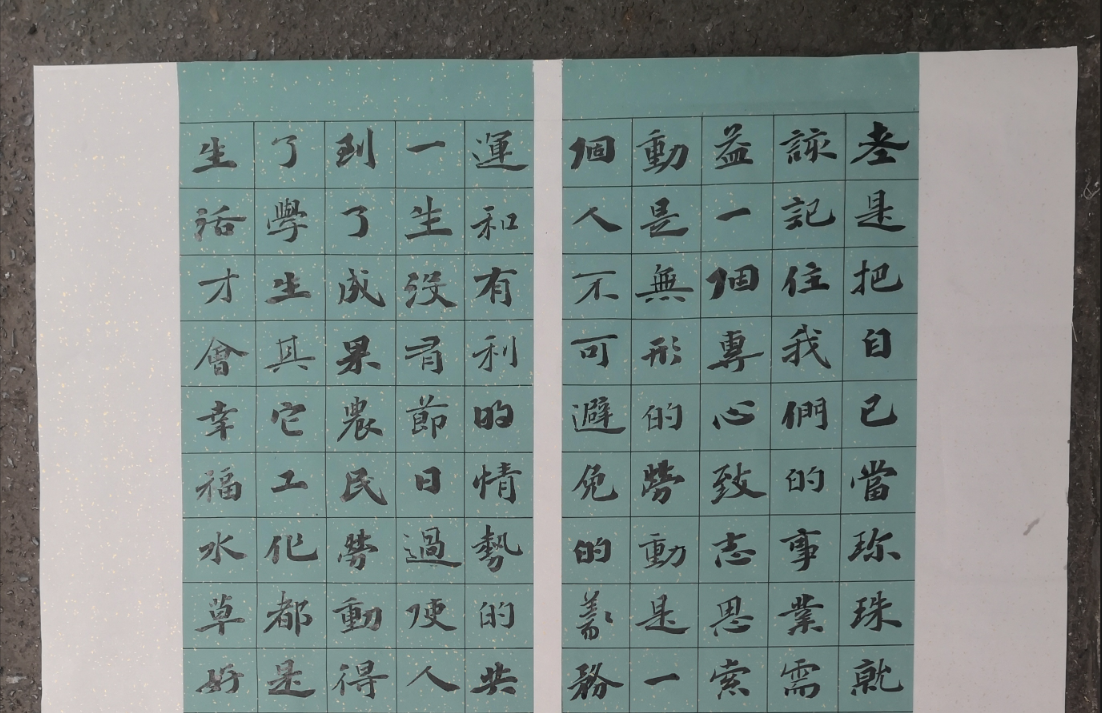 老是把自已當珎珠就
詠記住我們的事業需
益一個專心致志思索
動是無形的勞動是一
個人不可避免的義務
運和有利的情勢的共
一生没有節日過便人
到了成果農民勞動得
了學生其它工作都是
生活才會幸福水草